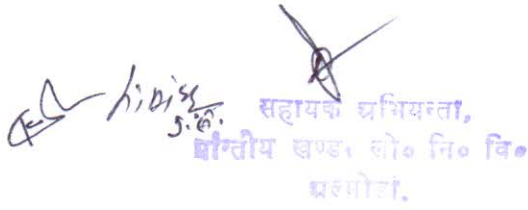 सहायक अभियन्ता,
प्रान्तीय खण्ड, लो० नि० वि०
अल्मोड़ा.